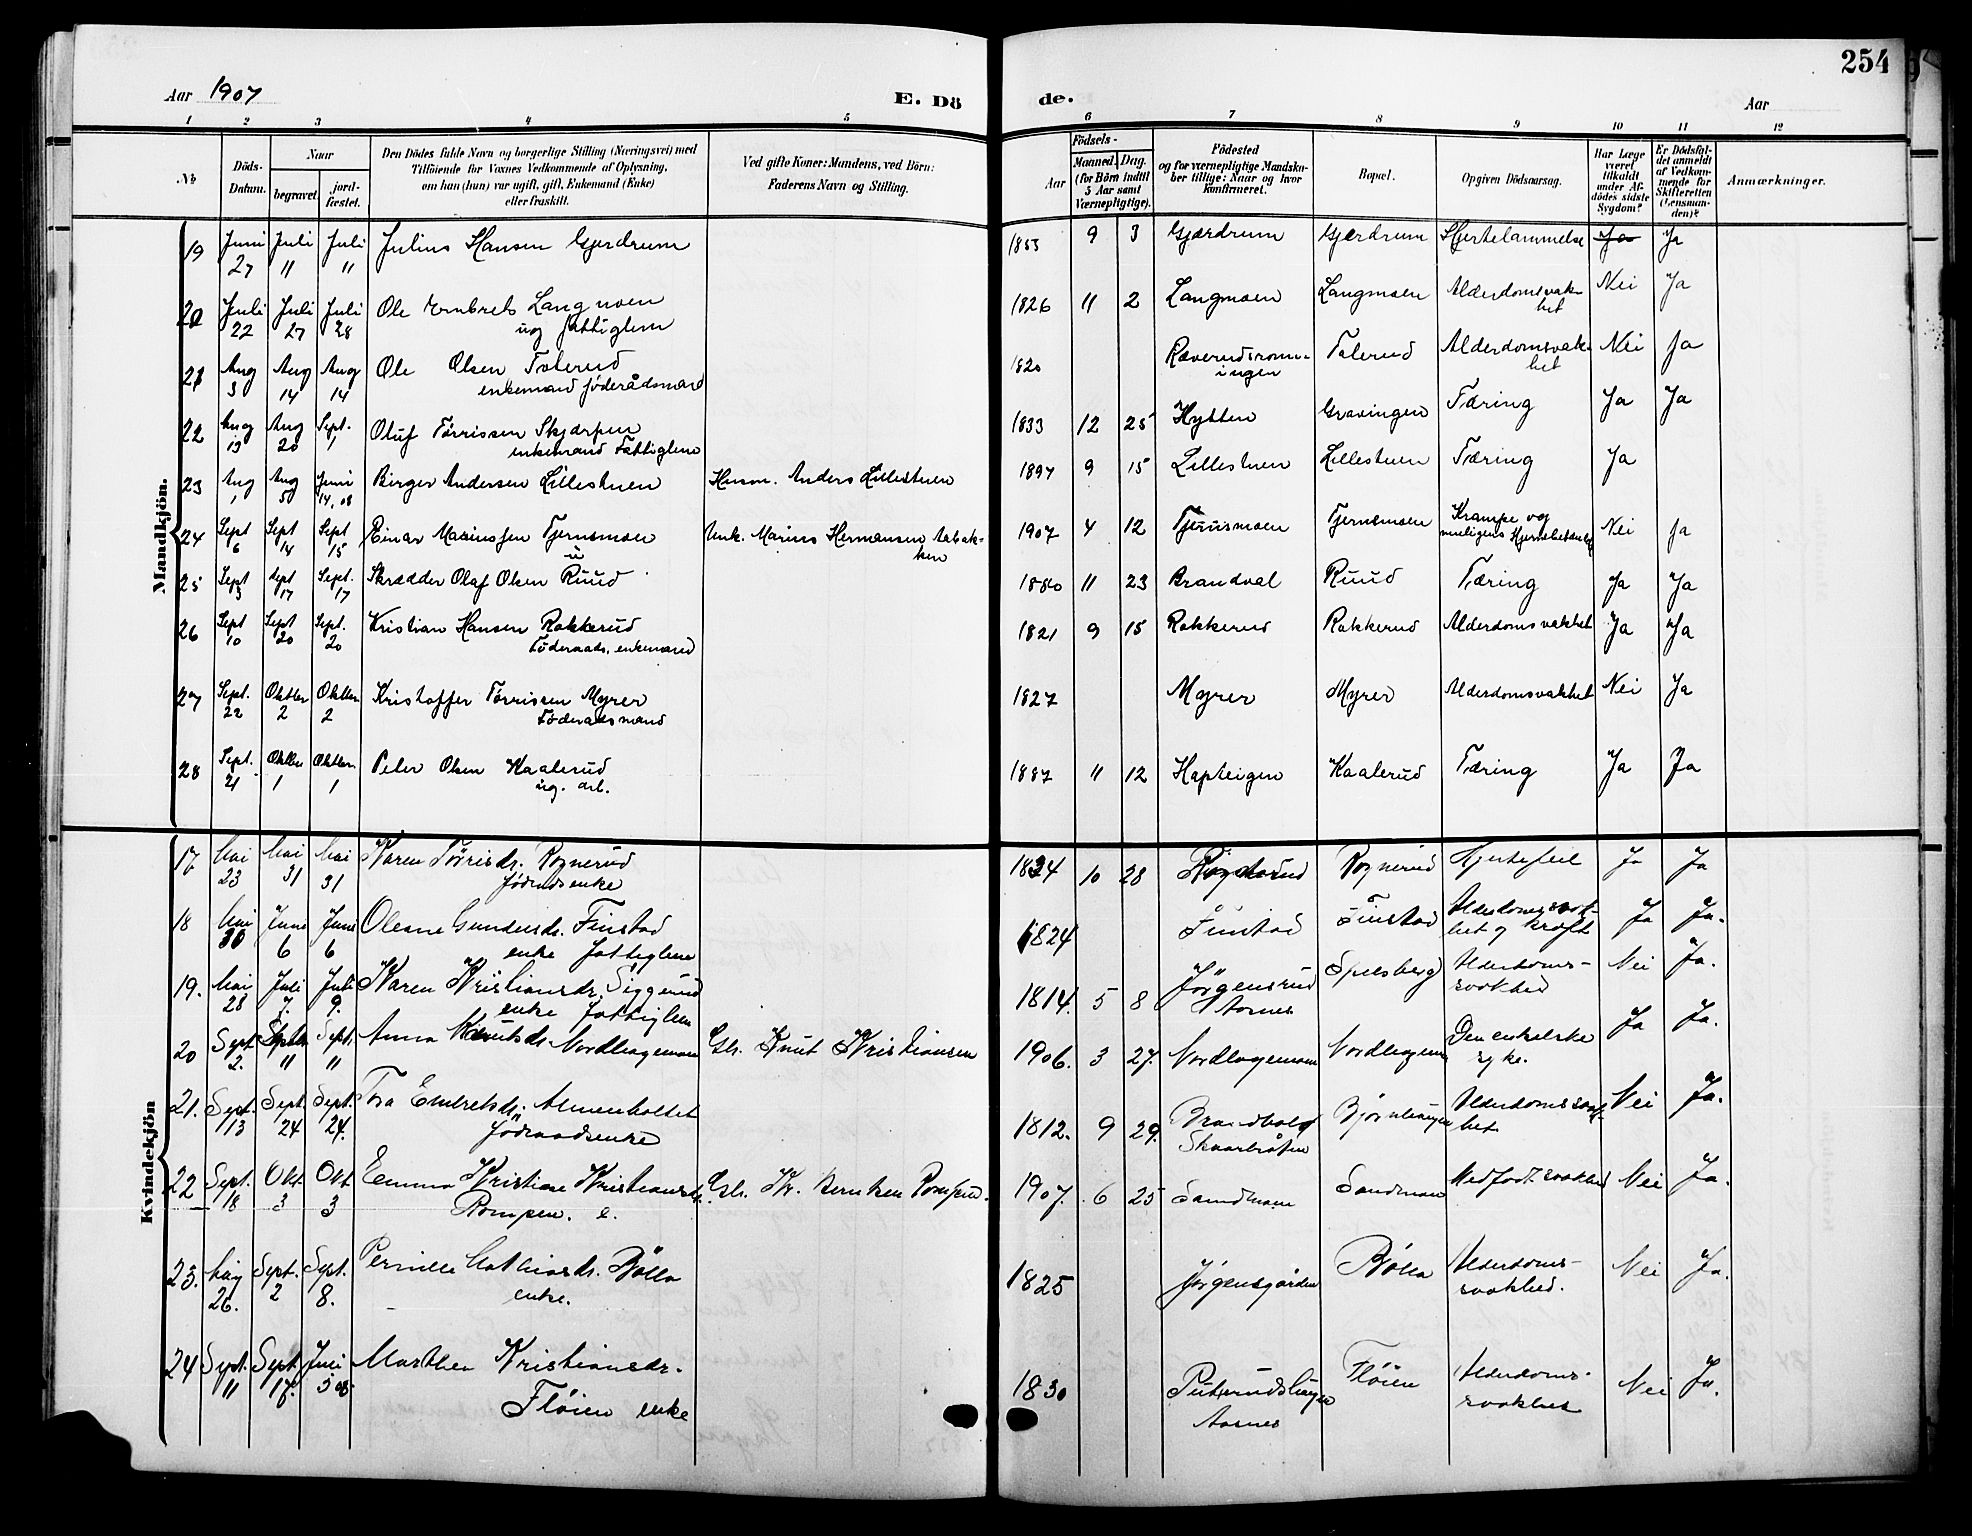 254
Aar 1907
E. Dö
de.
Aar
1 2 3 4 5 6 7 8 9 10 11 12
№
Döds-
Datum.
Naar
begravet.
jord-
fæstet.
Den Dödes fulde Navn og borgerlige Stilling (Næringsvei) med
Tilföiende for Voxnes Vedkommende af Oplysning,
om han (hun) var ugift, gift, Enkemand (Enke)
eller fraskilt.
Ved gifte Koner: Mandens, ved Börn:
Faderens Navn og Stilling.
Födsels-
Aar
Maaned. Dag.
(for Börn indtil
5 Aar samt
Værnepligtige).
Födested
og for værnepligtige Mandska-
ber tillige: Naar og hvor
konfirmeret.
Bopæl.
Opgiven Dödsaarsag.
Har Læge
været
tilkaldt
under Af-
dödes sidste
Sygdom?
Er Dödsfal-
det anmeldt
af Vedkom-
mende for
Skifteretten
(Lensman-
den)?
Anmærkninger.
Mandkjön.
19 Juni 27 Juli 11 Juli 11 Julius Hansen Gjerdrum 1853 9 3 Gjærdrum Gjærdrum Hjertelammelse Ja Ja
20 Juli 22 Juli 27 Juli 28 Ole Embrets Langmoen 1826 11 2 Langmoen Langmoen Alderdomsvak- Nei Ja
ug fattiglem
het
21 Aug 3 Aug 14 Aug 14 Ole Olsen Tolerud 1820 Tolerud Alderdomsvak- Nei Ja
enkemand föderådsmand
ingen
het
22 Aug 13 Aug 20 Sept. 1 Oluf Törrissen Skjærpen 1833 12 25 Hytten Gravingen Tæring Ja Ja
enkemand Fattiglem
23 Aug 1 Aug 5 Juni 14, 08 Birger Andersen Lillestuen Husm. Anders Lillestuen 1897 9 15 Lillestuen Lillestuen Tæring Ja
24 Sept 6 Sept 14 Sept 15 Einar Mariussen Tjernsmoen Unk. Marius Hermansen 1907 4 12 Tjernsmoen Tjernsmoen Krampe og Nei Ja
u
ken
muligens
25 Sept 3 Sept 17 Sept. 17 Skrædder Olaf Olsen Ruud 1880 11 23 Brandval Ruud Tæring Ja Ja
26 Sept 10 Sept 20 Sept. 20 Kristian Hansen Rakkerud 1821 9 15 Rakkerud Rakkerud Alderdomsvakhet Ja Ja
Föderaads, enkemand
27 Sept. 22 Oktbr 2 Oktbr 2 Kristoffer Törrissen Myrer 1827 Myrer Myrer Alderdomsvakhet Nei Ja
Föderaadsmand
28 Sept. 21 Oktbr 1 Oktbr. 1 Peter Olsen Kaalerud 1887 11 12 Hapteigen Kaalerud Tæring Ja Ja
ug. arb.
Kvindekjön
17 Mai 23 Mai 31 Mai 31 Karen Törrisdr. Rognerud 1824 10 28 Rognerud Hjertefeil Ja Ja
föderadsenke
18 Mai 30 Juni 6 Juni 6 Olesne Gundersdr. Finstad 1824 Finstad Finstad Alderdomssvak- Ja Ja.
enke fattiglem
het og kræft
19. Mai 28 Juli 7. Juli 9. Karen Kristiansdr. Siggerud 1814. 5 8 Jörgensrud Spelsberg Alderdoms- Nei Ja.
enke fattiglem
Aasnes
svakhed
20 Sept 2. Septbr 11 Sept. 11 Anna Knutsdr. Nordhagemoen Gbr. Knut Kristiansen 1906. 3 27. Nordhagemoen Nordhagemoen Den enkelske Ja Ja.
syke.
21. Sept. 13 Sept. 24 Sept. 24. Tora Embretsdr. Almenholtet 1812. 9 29. Björnhaugen Alderdomssvak- Nei Ja.
föderaadsenke
het
22 Sept. 18 Okt. 3 Okt 3 Emma Kristine Kristiansdr. Gbr. Kr. Berntsen Rompen. 1907. 6 25 Sandmoen Sandmoen Medfödt svakhed Nei Ja.
Rompen. e.
23. Aug 26. Sept. 2 Sept. 8. Pernille Mathiasdr. Bölla 1825 Jörgensgården Bölla Alderdoms- Nei Ja.
enke.
svakhed.
24 Sept. 11 Sept. 17. Juni 5 08 Marthea Kristiansdr. 1830 Flöien Alderdoms- Nei Ja.
Flöien enke
Aasnes
svakhet